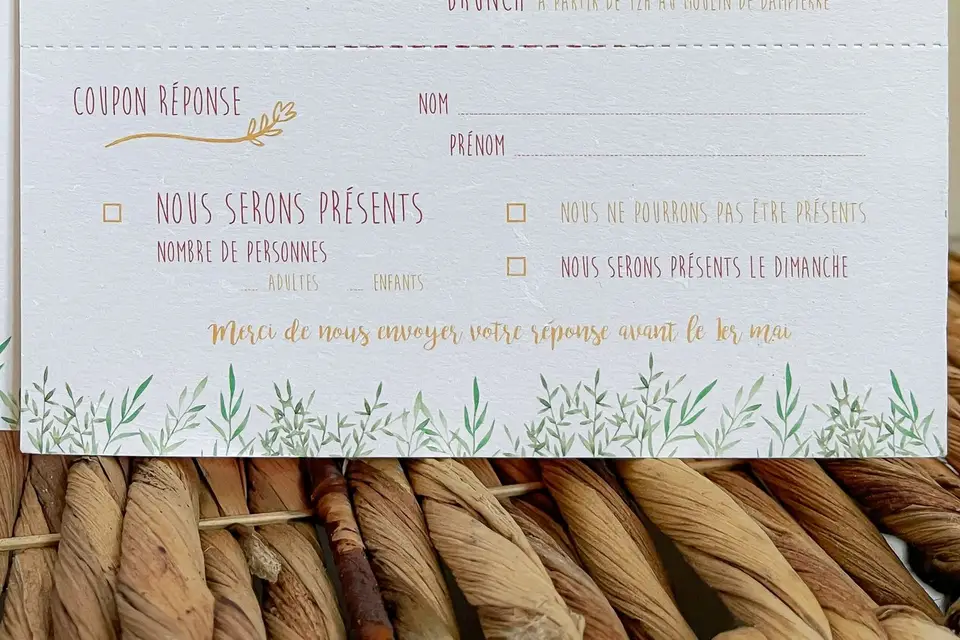 BRUNCH À PARTIR DE 12H AU MOULIN DE DAMPIERRE
COUPON RÉPONSE
NOM
PRÉNOM
NOUS SERONS PRÉSENTS
NOMBRE DE PERSONNES
ADULTES ENFANTS
NOUS NE POURRONS PAS ÊTRE PRÉSENTS
NOUS SERONS PRÉSENTS LE DIMANCHE
Merci de nous envoyer votre réponse avant le 1er mai